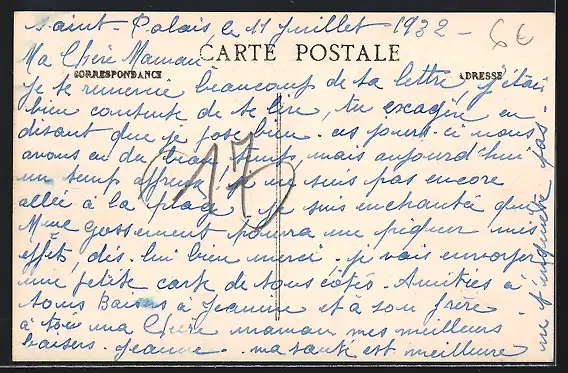 Saint-Palais, le 11 juillet 1932 -
6€
Ma Chère Maman
CARTE POSTALE
CORRESPONDANCE
ADRESSE
je te remercie beaucoup de ta lettre, j'étais
bien contente de te lire, tu exagère en
disant que je pose bien. ces jours-ci nous
avons eu du beau temps, mais aujourd'hui
un temps affreux, je ne suis pas encore
allée à la plage, je suis enchantée que
Mme Gossement pourra me piquer mes
effets, dis-lui bien merci. je vais envoyer
une petite carte de tous côtés. Amitiés à
tous Baisers à Jeanne et à son frère
à toi ma Chère maman mes meilleurs
baisers. Jeanne. ma santé est meilleure
ne t'inquiète pas.
17